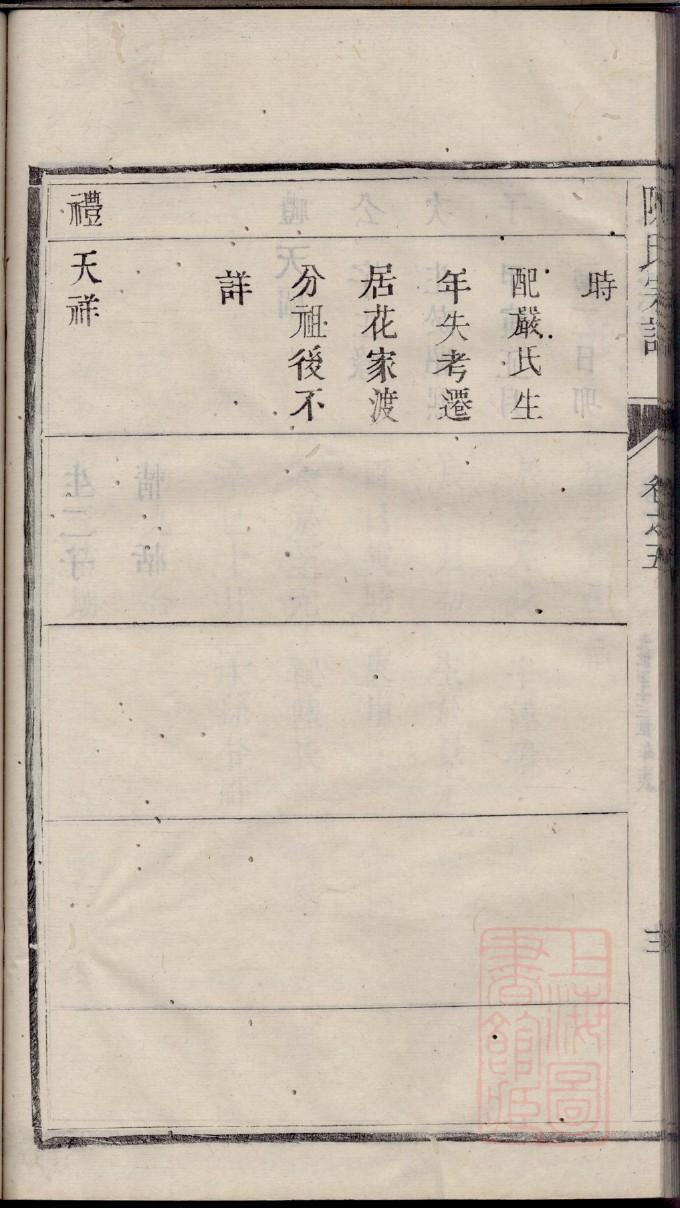 陳氏宗譜
卷之五
時
配嚴氏生
年失考遷
居花家渡
分祖後不
詳
禮
天祥
上海圖
書館藏